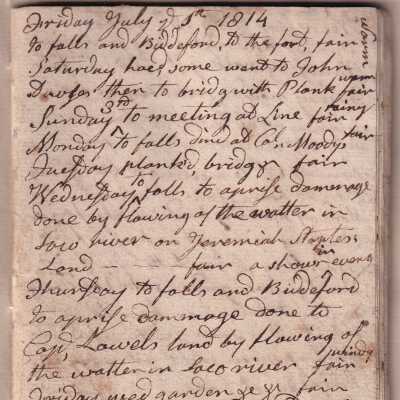 Friday July y 1st 1814
To falls and Biddeford, to the fort, fair warm
Saturday hoed some went to John
Davses then to bridg with Plank warm fair
Sunday 3rd to meeting at Line fair rainy
Monday to falls dind at Col. Moodys fair
Tuesday planked, bridg &c fair
Wednesday to falls to aprise damenage
done by flowing of the watter in
Saco river on Jeremiah Staples
Land - - fair a shower in eveng
Thursday to falls and Biddeford
to aprise damnage done to
Capt, Lowels land by flowing of
the watter in Saco river fair windy
Friday wed garden &c &c fair